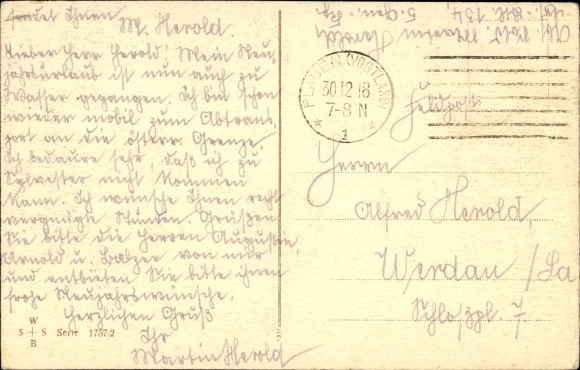 sendet Ihnen
M. Herold.
Lieber Herr Herold! Mein Neu-
jahrsurlaub ist nun auch zu
Wasser gegangen. Ich bin schon
wieder mobil zum Abtrans-
port an die österr. Grenze.
Ich bedaure sehr, daß ich zu
Sylvester nicht kommen
kann. Ich wünsche Ihnen recht
vergnügte Stunden. Grüßen
Sie bitte die Herren Augustin,
Arnold u. Balzer von mir
und entbieten Sie bitte ihnen
frohe Neujahrswünsche.
Herzlichen Gruß
Ihr
Martin Herold
W
S S
B
Serie 1757/2
Martin Herold
134
PLAUEN (VOGTLAND)
30 12 18
7-8 N
* 1 *
Feldpost
Herrn
Alfred Herold,
Werdau /Sa
Schloßpl. 7